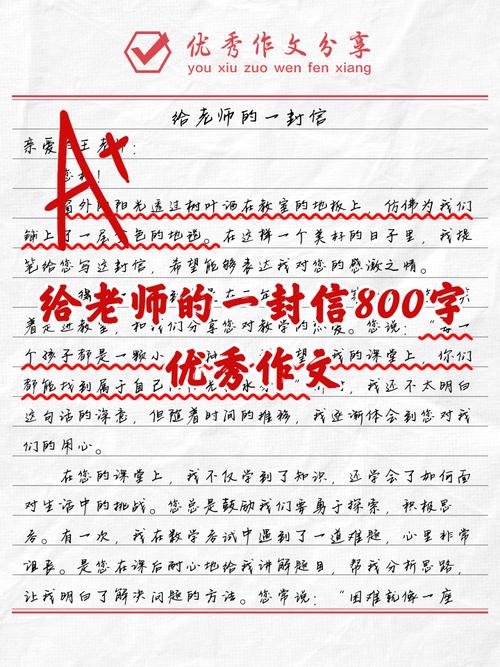 优秀作文分享
you xiu zuo wen fen xiang
给老师的一封信
A+
亲爱 王老师：
您 ！
窗外 阳光透过树叶洒在教室的地板上，仿佛为我们
铺上了一层 色的地毯。在这样一个美好的日子里，我提
笔给您写这封信，希望能够表达我对您的感激之情。
给老师的一封信800字
着走进教室，和我们分享您对数学的热爱。您说："每一
个孩子都是一颗小 望 我的课堂上，你们
优秀作文
都能找到属于自己 ，我还不太明白
这句话的深意，但随着时间的推移，我逐渐体会到您对我
们的用心。
在您的课堂上，我不仅学到了知识，还学会了如何面
对生活中的挑战。您总是鼓励我们要勇于探索，积极思
考。有一次，我在数学考试中遇到了一道难题，心里非常
沮丧。是您在课后耐心地给我讲解题目，帮我分析思路，
让我明白了解决问题的方法。您常说："困难就像一座